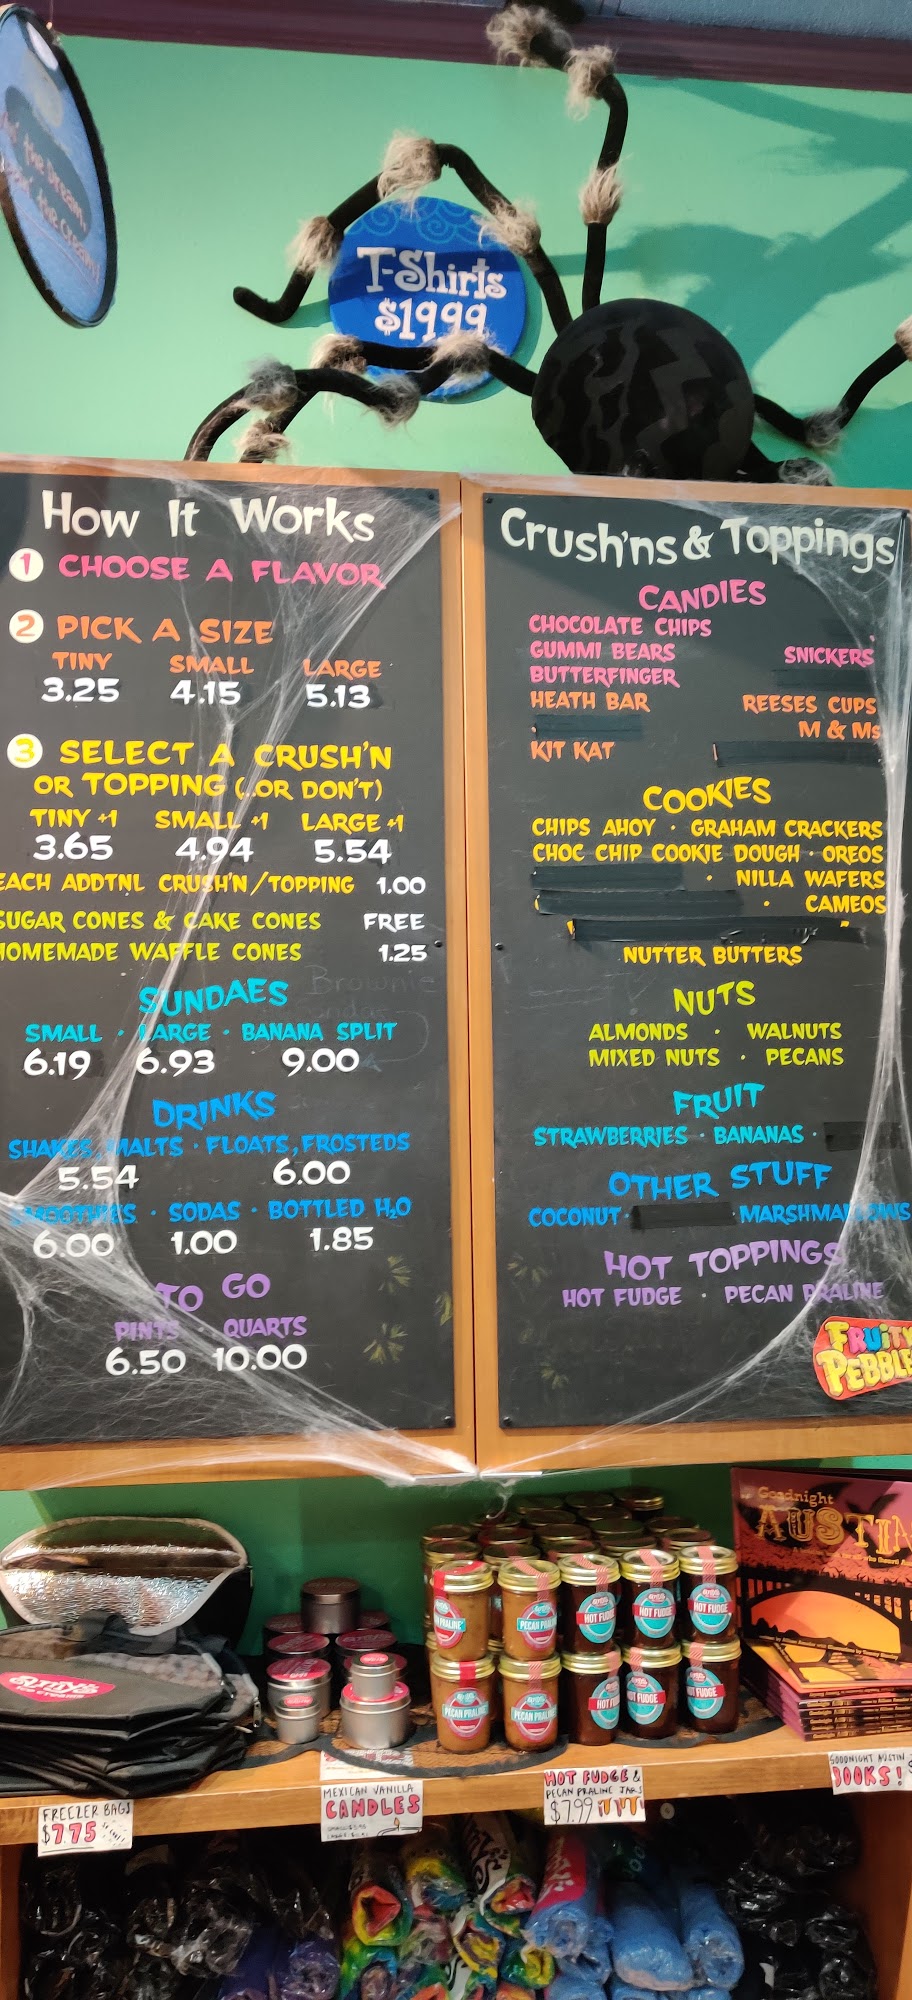 the Dream,
the Cream!
T-Shirts
$19.99
How It Works
1 CHOOSE A FLAVOR
2 PICK A SIZE
TINY SMALL LARGE
3.25 4.15 5.13
3 SELECT A CRUSH'N
OR TOPPING (..OR DON'T)
TINY +1 SMALL +1 LARGE +1
3.65 4.94 5.54
EACH ADDTNL CRUSH'N/TOPPING 1.00
SUGAR CONES & CAKE CONES FREE
HOMEMADE WAFFLE CONES 1.25
Brownie
SUNDAES
SMALL · LARGE · BANANA SPLIT
6.19 6.93 9.00
DRINKS
SHAKES, MALTS · FLOATS, FROSTEDS
5.54 6.00
SMOOTHIES · SODAS · BOTTLED H2O
6.00 1.00 1.85
TO GO
PINTS · QUARTS
6.50 10.00
Crush'ns & Toppings
CANDIES
CHOCOLATE CHIPS
GUMMI BEARS SNICKERS
BUTTERFINGER
HEATH BAR REESES CUPS
M & Ms
KIT KAT
COOKIES
CHIPS AHOY · GRAHAM CRACKERS
CHOC CHIP COOKIE DOUGH · OREOS
· NILLA WAFERS
· CAMEOS
NUTTER BUTTERS
NUTS
ALMONDS · WALNUTS
MIXED NUTS · PECANS
FRUIT
STRAWBERRIES · BANANAS ·
OTHER STUFF
COCONUT · · MARSHMALLOWS
HOT TOPPINGS
HOT FUDGE · PECAN PRALINE
FRUITY
PEBBLE
Goodnight
AUSTIN
Amy's
ICE CREAMS
PRALINE
PECAN PRALINE
HOT FUDGE
HOT FUDGE
HOT FUDGE
PECAN PRALINE
PECAN PRALINE
HOT FUDGE
HOT FUDGE
HOT FUDGE
FREEZER BAGS
$7.75
MEXICAN VANILLA
CANDLES
HOT FUDGE &
PECAN PRALINE JARS
$7.99
GOODNIGHT AUSTIN
BOOKS!